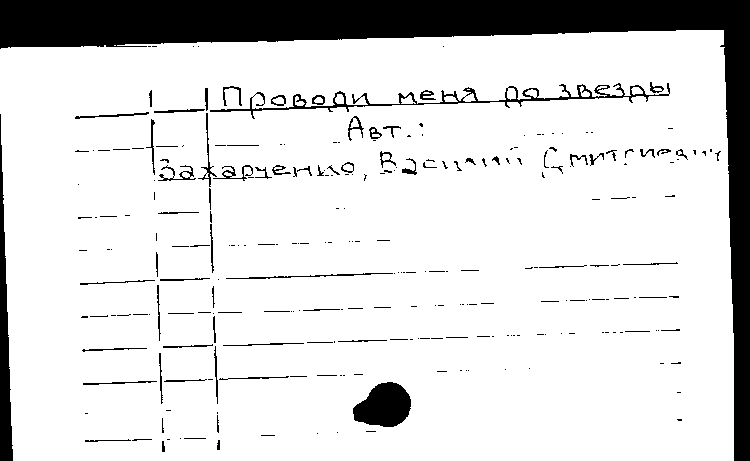 Проводи меня до звезды
Авт.:
Захарченко, Василий Дмитриевич